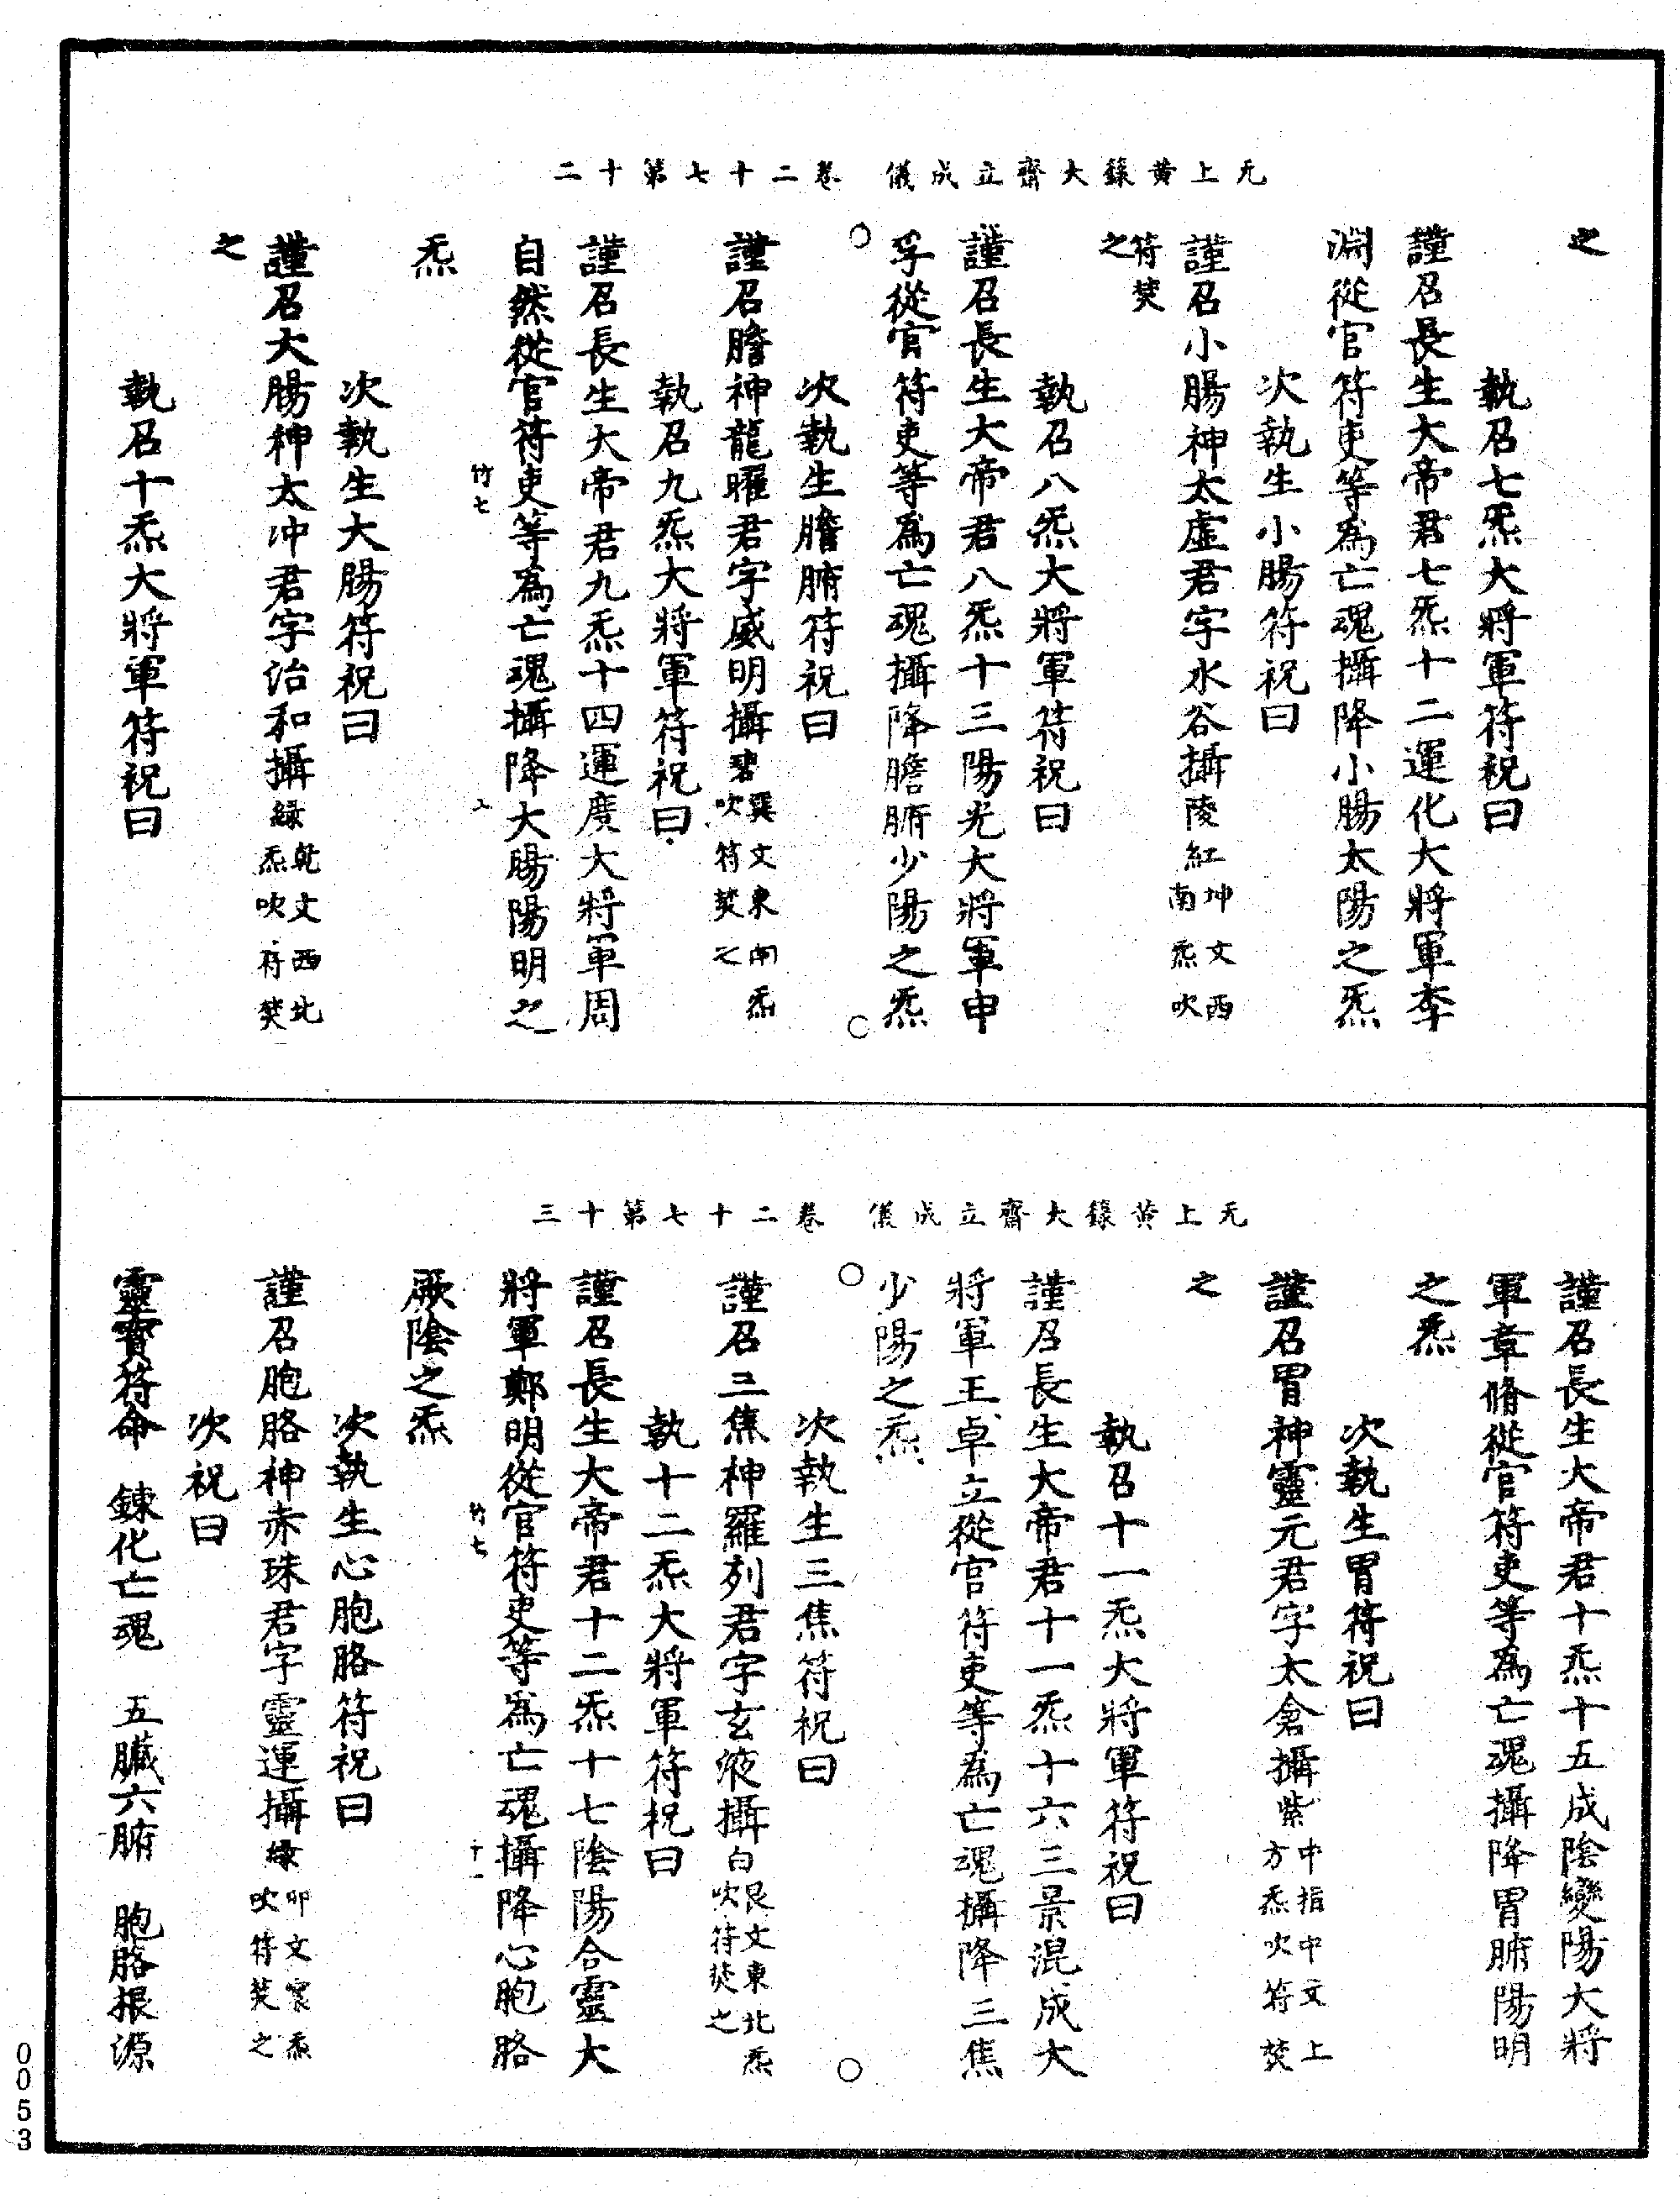 无上黄籙大齋立成儀　卷二十七第十二
之
執召七炁大將軍符祝曰
謹召長生大帝君七炁十二運化大將軍李
淵從官符吏等為亡魂攝降小腸太陽之炁
次執生小腸符祝曰
謹召小腸神太虛君字水谷攝陵紅坤文西南炁吹
符焚之
執召八炁大將軍符祝曰
謹召長生大帝君八炁十三陽光大將軍申
孚從官符吏等為亡魂攝降膽腑少陽之炁
次執生膽腑符祝曰
謹召膽神龍曜君字威明攝碧巽文東南炁吹符焚之
執召九炁大將軍符祝曰
謹召長生大帝君九炁十四運廣大將軍周
自然從官符吏等為亡魂攝降大腸陽明之
竹七
炁
次執生大腸符祝曰
謹召大腸神太冲君字治和攝綠乾文西北炁吹符焚
之
執召十炁大將軍符祝曰
无上黄籙大齋立成儀　卷二十七第十三
謹召長生大帝君十炁十五成陰變陽大將
軍章脩從官符吏等為亡魂攝降胃腑陽明
之炁
次執生胃符祝曰
謹召胃神靈元君字太倉攝紫中指中文上方炁吹符焚
之
執召十一炁大將軍符祝曰
謹召長生大帝君十一炁十六三景混成大
將軍王卓立從官符吏等為亡魂攝降三焦
少陽之炁
次執生三焦符祝曰
謹召三焦神羅列君字玄液攝白艮文東北炁吹符焚之
執十二炁大將軍符祝曰
謹召長生大帝君十二炁十七陰陽合靈大
將軍鄭明從官符吏等為亡魂攝降心胞胳
竹七　十一
厥陰之炁
次執生心胞胳符祝曰
謹召胞胳神赤珠君字靈運攝綠卯文震炁吹符焚之
次祝曰
靈寶符命　鍊化亡魂　五臟六腑　胞胳根源
0053